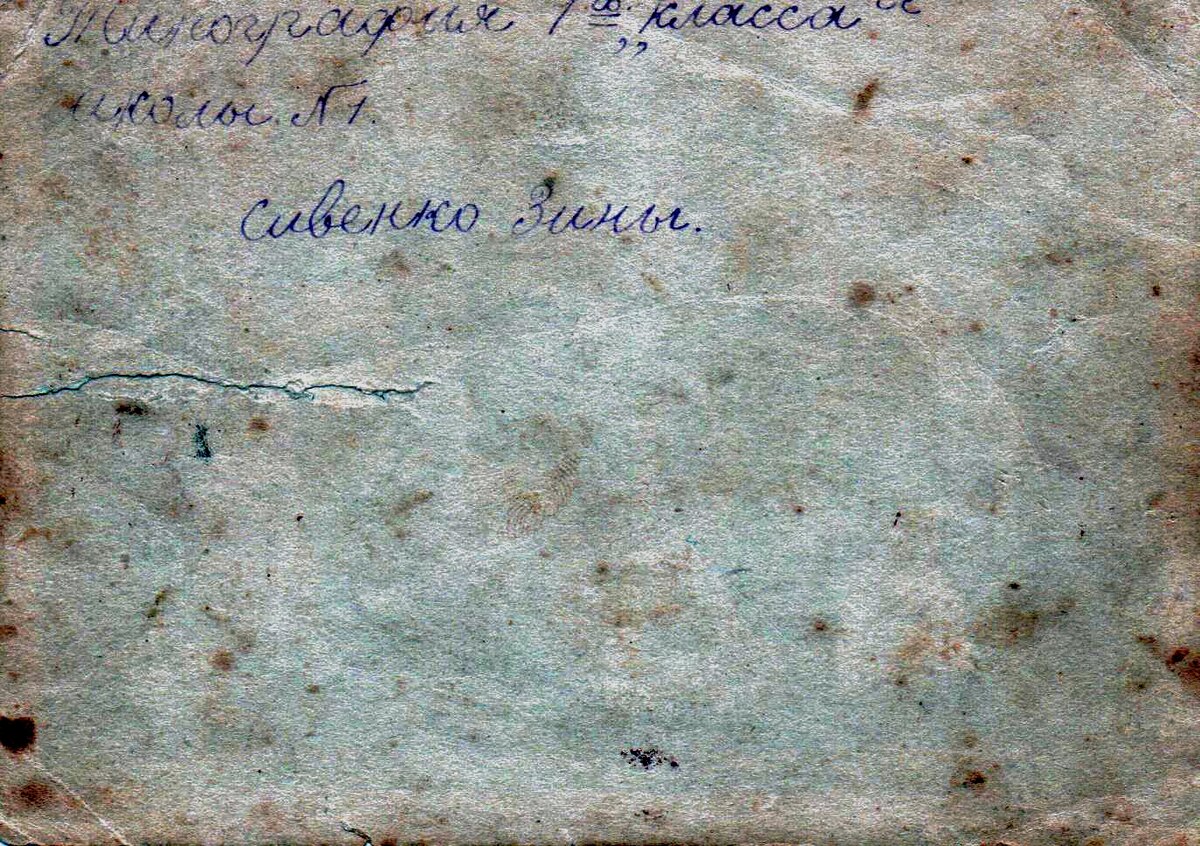 Типография 7 „класса“
школы N 1.
Сивенко Зины.